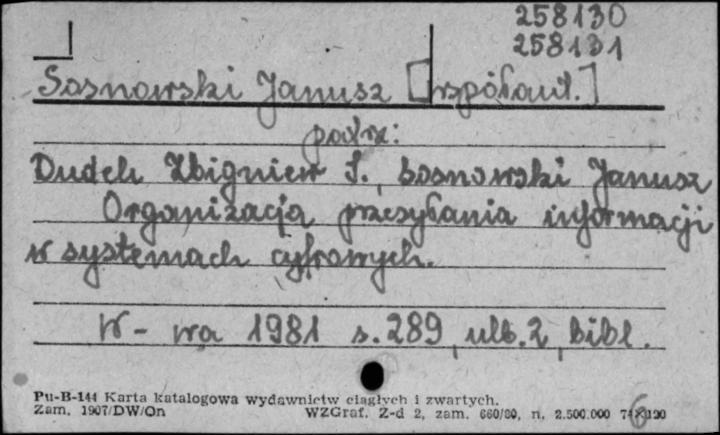 258130
258131
Sosnowski Janusz [współaut.]
patrz:
Dudek Zbigniew S., Sosnowski Janusz
Organizacja przesyłania informacji
w systemach cyfrowych.
W-wa 1981 s. 289, ulb. 2, bibl.
Pu-B-144 Karta katalogowa wydawnictw ciągłych i zwartych.
Zam. 1907/DW/On WZGraf. Z-d 2, zam. 660/80, n. 2.500.000